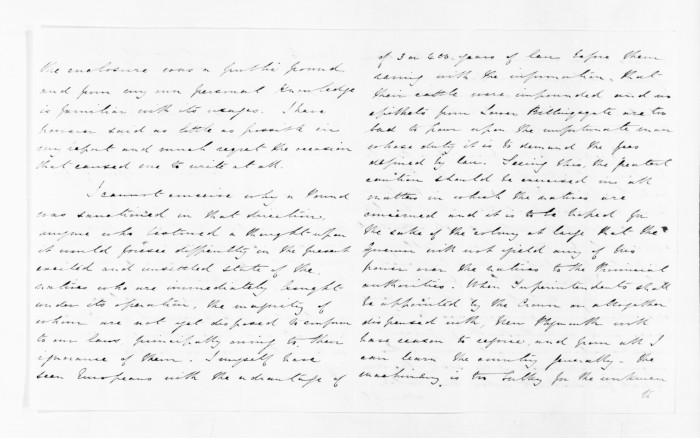 the enclosure was a public pound
and from my own personal knowledge
is familiar with its usages. I have
however said as little as possible in
my report and much regret the occasion
that caused me to write at all.
I cannot conceive why a Pound
was sanctioned in that direction,
anyone who bestowed a thought upon
it would foresee difficulty in the present
excited and unsettled state of the
natives who are immediately brought
under its operation, the majority of
whom are not yet disposed to conform
to our laws principally owing to their
ignorance of them. I myself have
seen Europeans with the advantage of
of 3 or 400 years of law before them
with the information, that
their cattle were impounded and no
epithets from Lower Billingsgate are too
bad to pour upon the unfortunate man
whose duty it is to demand the fees
defined by law. Seeing this, the greatest
caution should be exercised in all
matters in which the natives are
concerned and it is to be hoped for
the sake of the colony at large that the
Governor will not yield any of his
power over the natives to the Provincial
authorities. When Superintendents shall
be appointed by the Crown or altogether
dispensed with, New Plymouth will
have reason to rejoice, and from all I
can learn the country generally - the
machinery is too bulky for the workmen
to